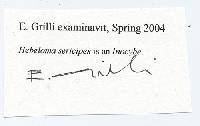 E. Grilli examinavit, Spring 2004
Hebeloma sericipes is an Inocybe
E. Grilli